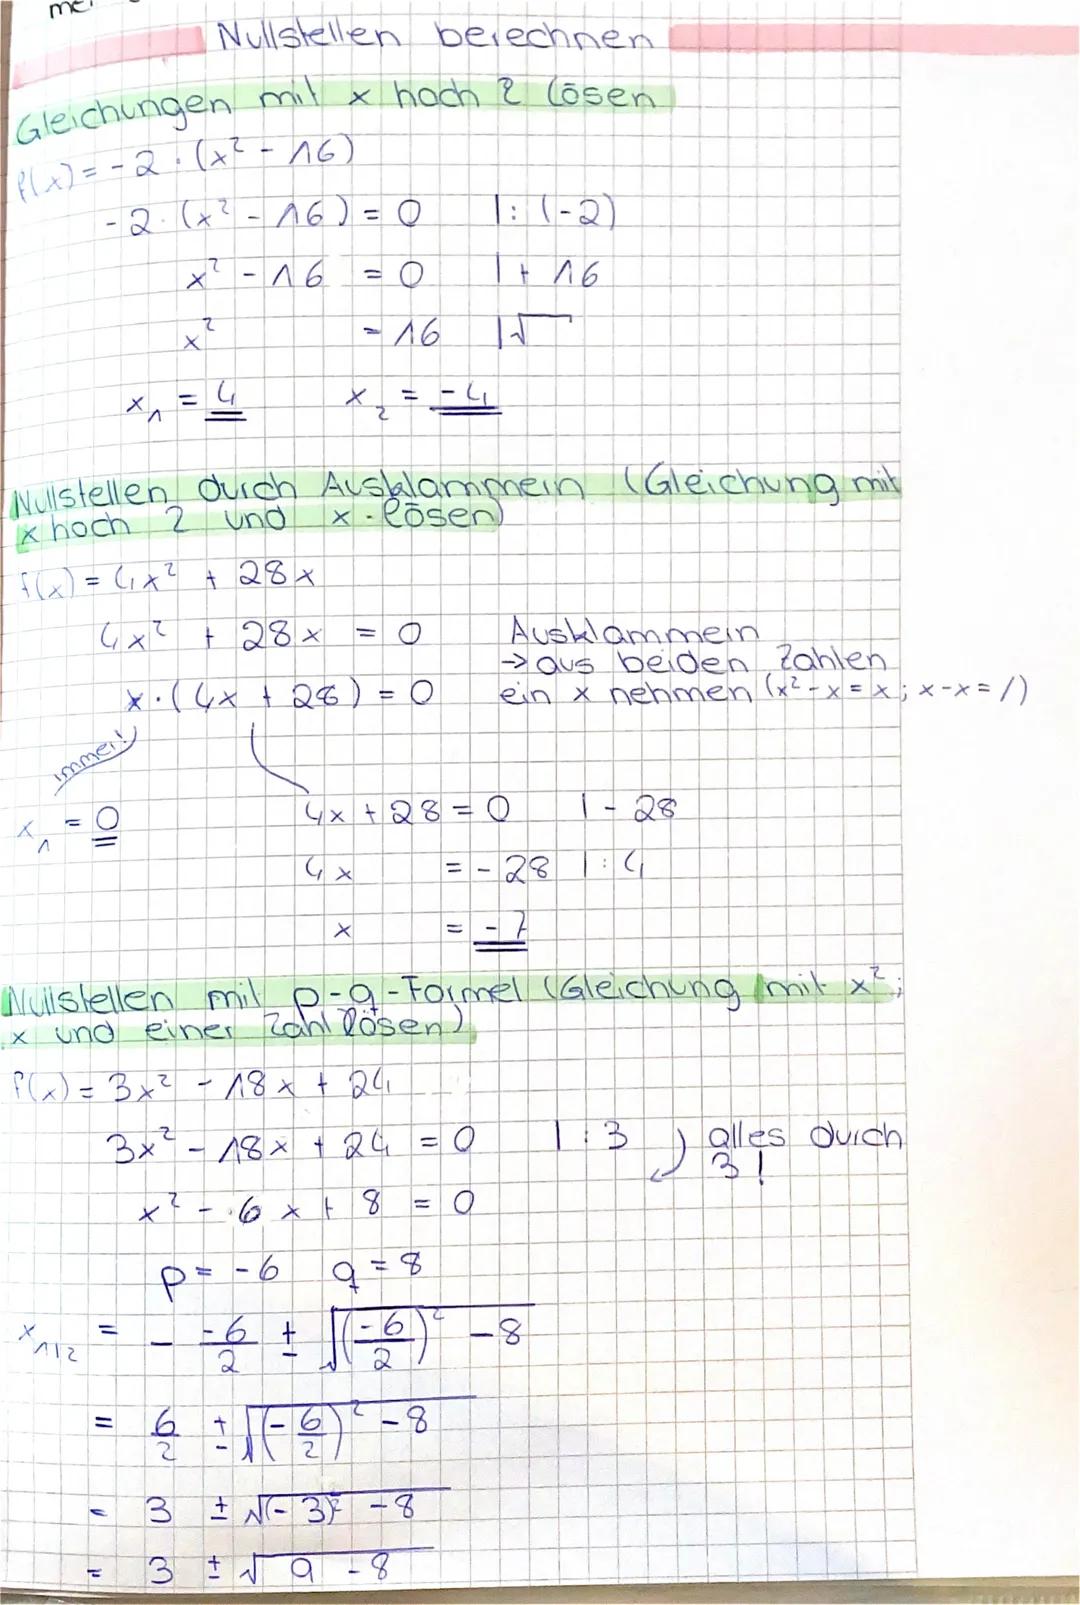 Nullstellen berechnen
Gleichungen mit x hoch 2 lösen
f(x) = -2 · (x² - 16)
-2 · (x² - 16) = 0 | : (-2)
x² - 16 = 0 | + 16
x² = 16 | √
x₁ = 4 x₂ = -4
Nullstellen durch Ausklammern (Gleichung mit
x hoch 2 und x - lösen)
f(x) = 4x² + 28x
4x² + 28x = 0 Ausklammern
→ aus beiden Zahlen
x · (4x + 28) = 0 ein x nehmen (x² - x = x ; x - x = /)
immer!
x₁ = 0 4x + 28 = 0 | - 28
4x = - 28 | : 4
x = - 7
Nullstellen mit p-q-Formel (Gleichung mit x² ;
x und einer Zahl lösen)
f(x) = 3x² - 18x + 24
3x² - 18x + 24 = 0 | : 3 alles durch
3!
x² - 6x + 8 = 0
p = -6 q = 8
x₁|₂ = - -6/2 ± √((-6/2)² - 8)
= 6/2 ± √((-6/2)² - 8)
= 3 ± √((-3)² - 8)
= 3 ± √(9 - 8)